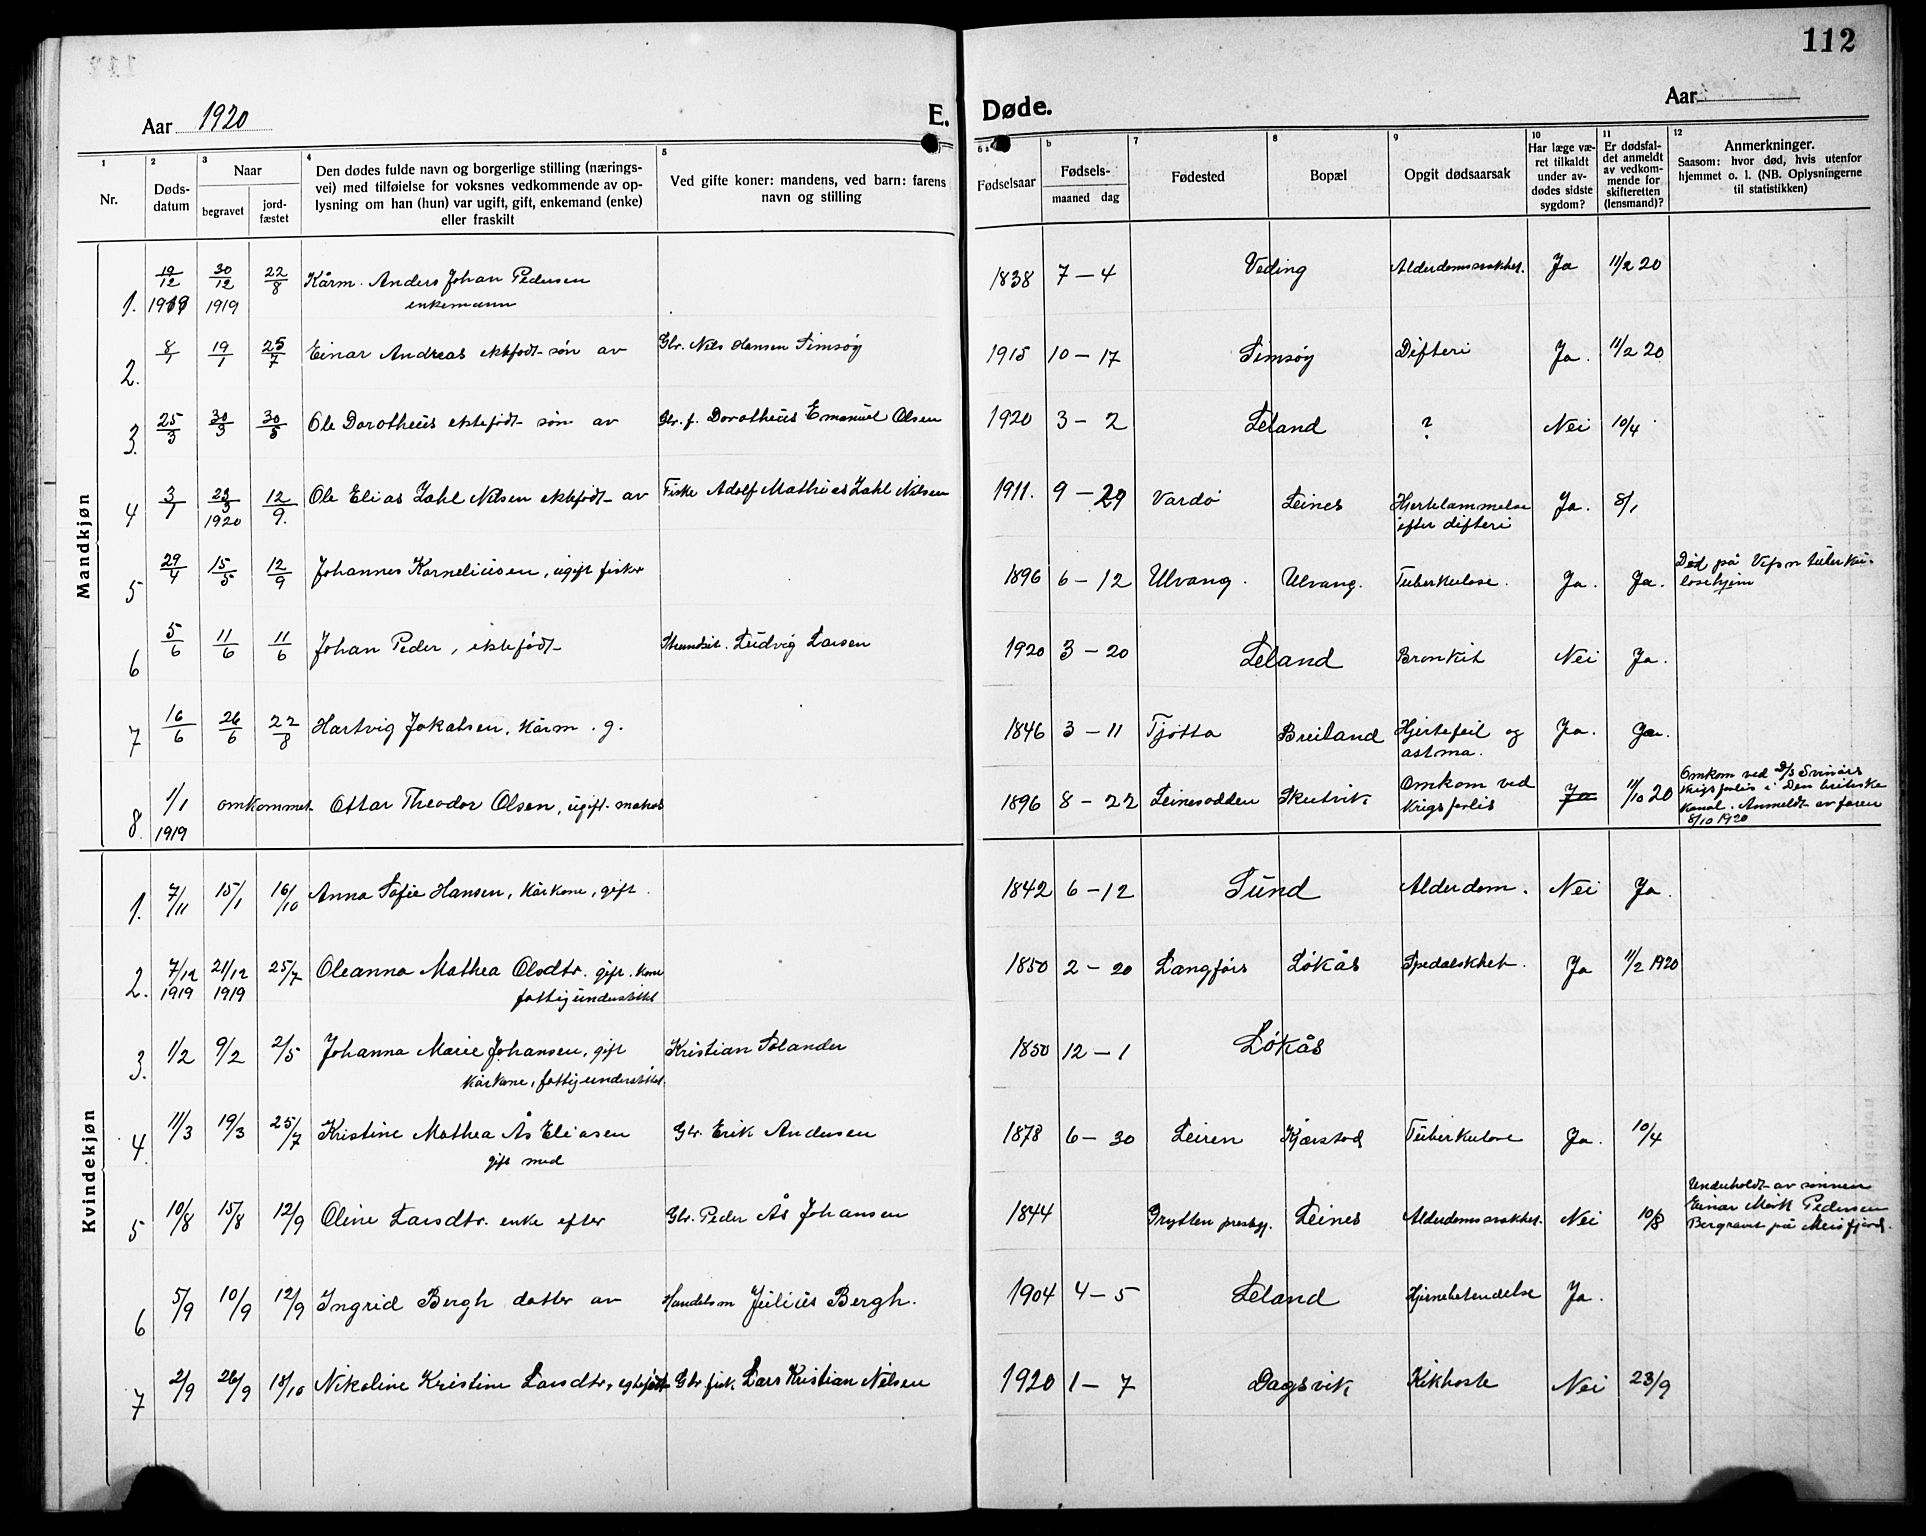 112
Aar 1920
E. Døde.
Aar
1
Nr.
2
Døds-
datum
3
Naar
begravet
jord-
fæstet
4
Den dødes fulde navn og borgerlige stilling (nærings-
vei) med tilføielse for voksnes vedkommende av op-
lysning om han (hun) var ugift, gift, enkemand (enke)
eller fraskilt
5
Ved gifte koner: mandens, ved barn: farens
navn og stilling
6 a
Fødselsaar
b
Fødsels-
maaned dag
7
Fødested
8
Bopæl
9
Opgit dødsaarsak
10
Har læge væ-
ret tilkaldt
under av-
dødes sidste
sygdom?
11
Er dødsfal-
det anmeldt
av vedkom-
mende for
skifteretten
(lensmand)?
12
Anmerkninger.
Saasom: hvor død, hvis utenfor
hjemmet o. l. (NB. Oplysningerne
til statistikken)
Mandkjøn
1. 19/12 1919 30/12 1919 22/8 Kårm. Anders Johan Pedersen 1838 7 – 4 Veding Alderdomssvakhet. Ja 11/2 20
enkemann
2. 8/1 19/1 25/7 Einar Andreas ektfødt søn av Gbr. Nils Hansen Simsøy 1915 10 – 17 Simsøy Difteri Ja. 11/2 20
3. 25/3 30/3 30/5 Ole Dorotheus ektefødt søn av Gbr. f. Dorotheus Emanuel Olsen 1920 3 – 2 Leland ? Nei 10/4
4 3/1 23/3 1920 12/9. Ole Elias Zahl Nilsen ektefødt av Fiske Adolf Mathias Zahl Nilsen 1911. 9 – 29 Vardö Leines Hjertelammelse Ja. 8/1
efter difteri
5 29/4 15/5 12/9 Johannes Korneliusen, ugift fisker 1896 6 – 12 Ulvang. Ulvang. Tuberkulose. Ja. Ja. Död på Vefsn tuberku-
losehjem
6 5/6 11/6 11/6 Johan Peder, ektefödt Strandsit. Ludvig Larsen 1920 3 – 20 Leland Bronkit Nei Ja.
7 16/6 26/6 22/8 Hartvig Jakobsen, Kårm. g. 1846 3 – 11 Tjötta Breiland Hjertefeil og Ja. Ja.
astma.
8. 1/1 1919 omkommet Ottar Theodor Olsen, ugift matros 1896 8 – 22 Leinesodden Skutvik Omkom ved Ja 11/10 20 Omkom ved D/S Svinörs
Krigsforlis Krigsforlis i Den britiske
Kanal. Anmeldt av faren
8/10 1920
Kvindekjøn
1. 7/11 15/1 16/10 Anna Sofie Hansen, Kårkone, gift. 1842 6 – 12 Sund Alderdom. Nei Ja.
2. 7/12 1919 21/12 1919 25/7 Oleanna Mathea Olsdtr. gift. kone 1850 2 – 20 Langfors Løkås Spedalskhet. Ja 11/2 1920
fattigunderstøttet
3. 1/2 9/2 2/5 Johanna Marie Johansen, gift Kristian Solander 1850 12 – 1 Løkås
Kårkone, fattigunderstøttet.
4 11/3 19/3 25/7 Kristine Mathea Ås Eliasen Gbr. Erik Andersen 1878 6 – 30 Leiren Kjærstad Tuberkulose Ja. 10/4
gift med
5 10/8 15/8 12/9 Oline Larsdtr. enke efter Gbr. Peder Ås Johansen 1844 Grytten prestegj. Leines Alderdomssvakhet. Nei 10/8 Underholdt av sønnen
Einar Mork Pedersen
Bergravet på Meisfjord.
6 5/9 10/9 12/9 Ingrid Bergh datter av Handelsm Julius Bergh. 1904 4 – 5 Leland Hjernebetendelse Ja.
7 2/9 26/9 18/10 Nikoline Kristine Larsdtr, egtefødt Gbr fisk. Lars Kristian Nilsen 1920 1 – 7 Dagsvik Kikhoste Nei 23/9